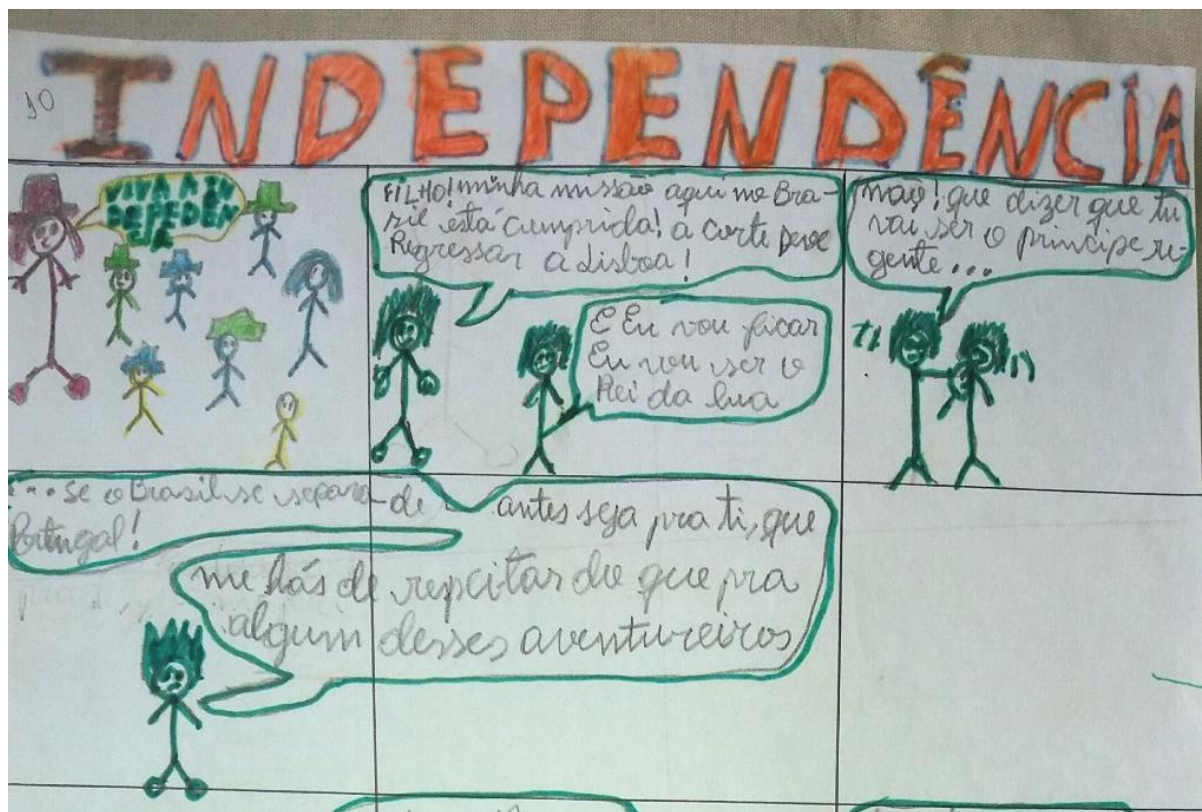 10
INDEPENDÊNCIA
VIVA A IN
DEPEDÊN
CIA
FILHO! minha missão aqui no Bra-
sil está cumprida! a corte deve
Regressar a Lisboa!
E Eu vou ficar
Eu vou ser o
Rei da lua
não! que dizer que tu
vai ser o principe re-
gente...
... se o Brasil se separa de
Portugal!
antes seja pra ti, que
me hás de respeitar do que pra
algum desses aventureiros